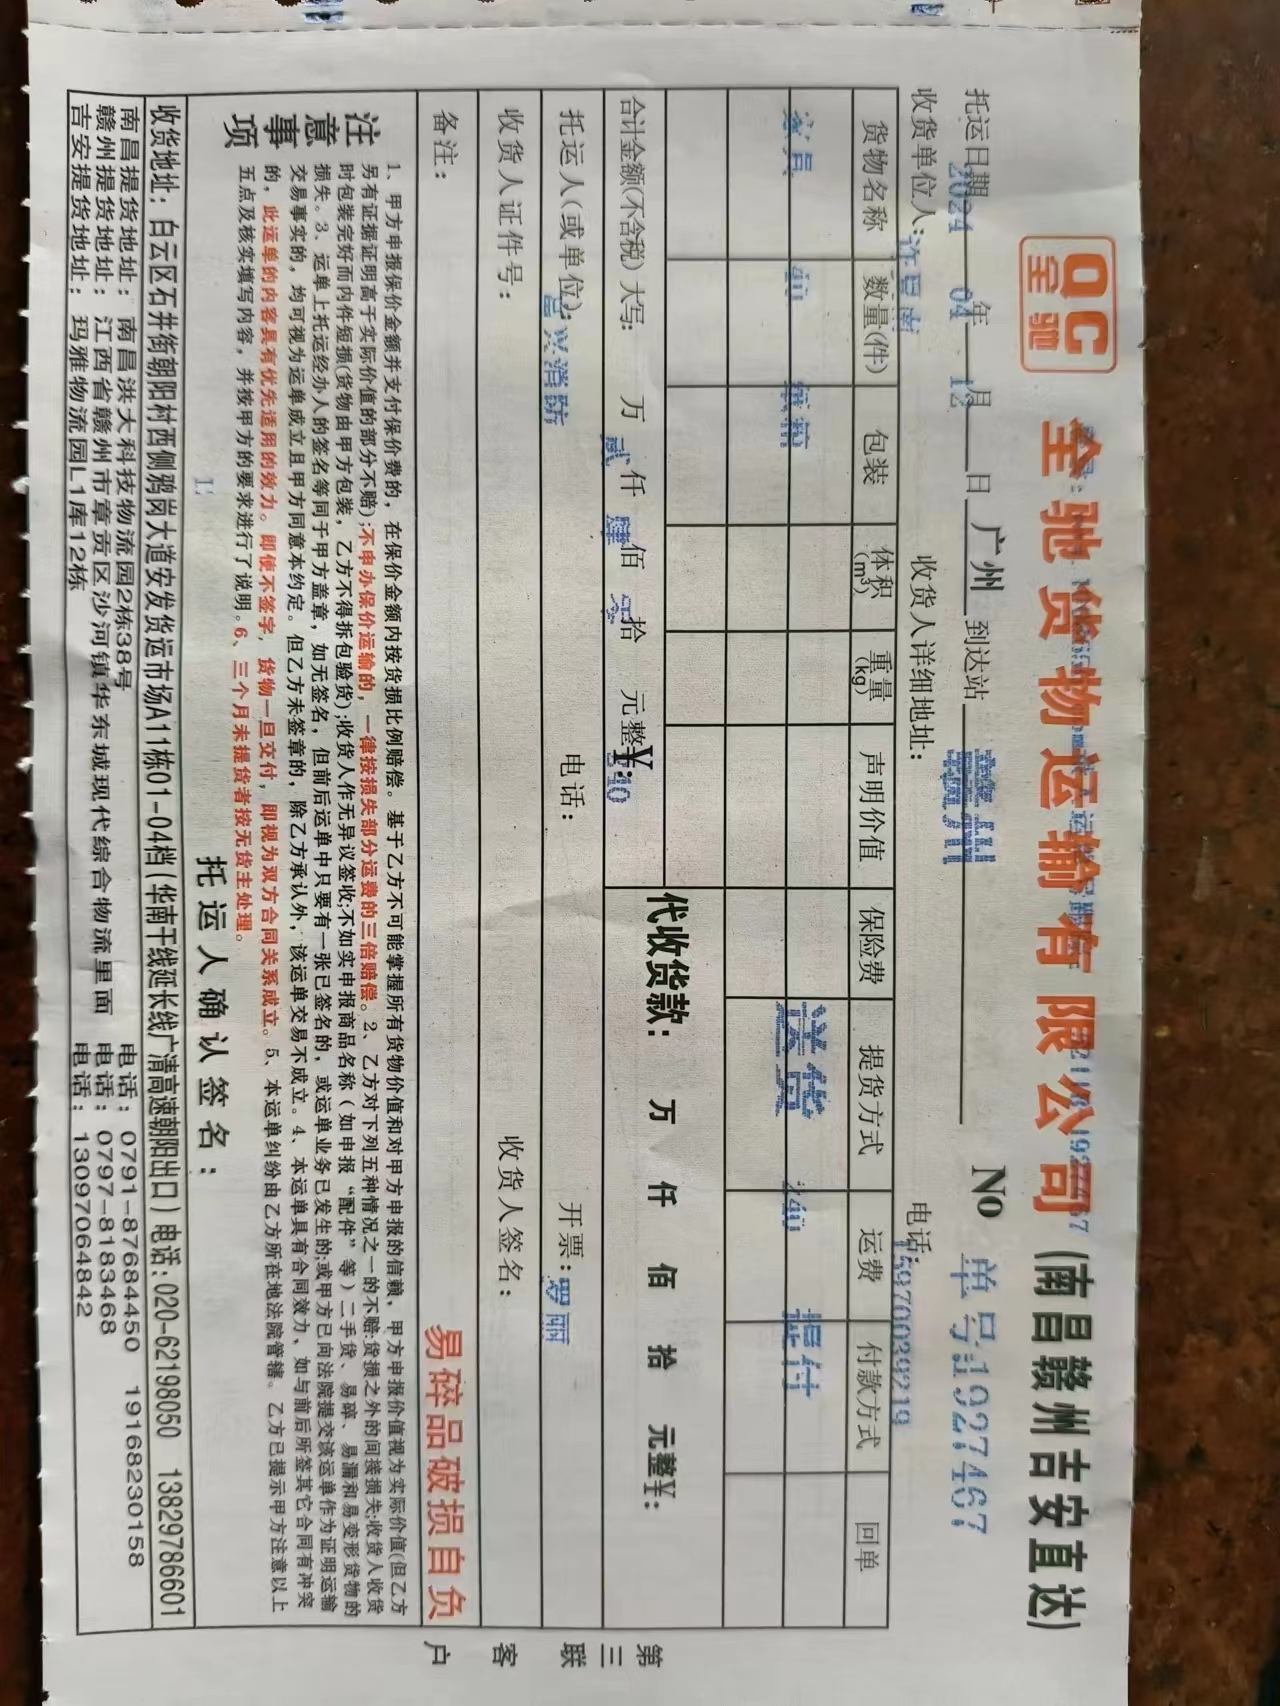 QC
全驰
全驰货物运输有限公司(南昌赣州吉安直达)
托运日期 2024 年 04 月 12 日 广州 到达站 赣州 No 单号:1927467
收货单位人: 收货人详细地址: 电话: 15970039219
货物名称 数量(件) 包装 体积(m³) 重量(kg) 声明价值 保险费 提货方式 运费 付款方式 回单
提付
合计金额(不含税)大写: 万 贰 仟 肆 佰 零 拾 元整¥: 代收货款: 万 仟 佰 拾 元整¥:
托运人(或单位): 电话: 开票: 罗丽
收货人证件号: 收货人签名:
备注: 易碎品破损自负
注意事项
1、甲方申报保价金额并支付保价费的，在保价金额内按货损比例赔偿。基于乙方不可能掌握所有货物价值和对甲方申报的信赖，甲方申报价值视为实际价值(但乙方
另有证据证明高于实际价值的部分不赔);不申办保价运输的，一律按损失部分运费的三倍赔偿。2、乙方对下列五种情况之一的不赔:货损之外的间接损失;收货人收货
时包装完好而内件短损(货物由甲方包装，乙方不得拆包验货);收货人作无异议签收;不如实申报商品名称(如申报“配件”等)二手货、易碎、易漏和易变形货物的
损失。3、运单上托运经办人的签名等同于甲方盖章，如无签名，但前后运单中只要有一张已签名的，或运单业务已发生的;或甲方已向法院提交该运单作为证明运输
交易事实的，均可视为运单成立且甲方同意本约定。但乙方未签章的，除乙方承认外，该运单交易不成立。4、本运单具有合同效力，如与前后所签其它合同有冲突
的，此运单的内容具有优先适用的效力。即使不签字，货物一旦交付，即视为双方合同关系成立。5、本运单纠纷由乙方所在地法院管辖。乙方已提示甲方注意以上
五点及核实填写内容，并按甲方的要求进行了说明。6、三个月未提货者按无货主处理。
托运人确认签名:
收货地址: 白云区石井街朝阳村西侧鸦岗大道安发货运市场A11栋01-04档(华南干线延长线广清高速朝阳出口) 电话:020-62198050 13829786601
南昌提货地址: 南昌洪大科技物流园2栋38号 电话: 0791-87684450 19168230158
赣州提货地址: 江西省赣州市章贡区沙河镇华东城现代综合物流里面 电话: 0797-8183468
吉安提货地址: 玛雅物流园L1库12栋 电话: 13097064842
第三联 客户